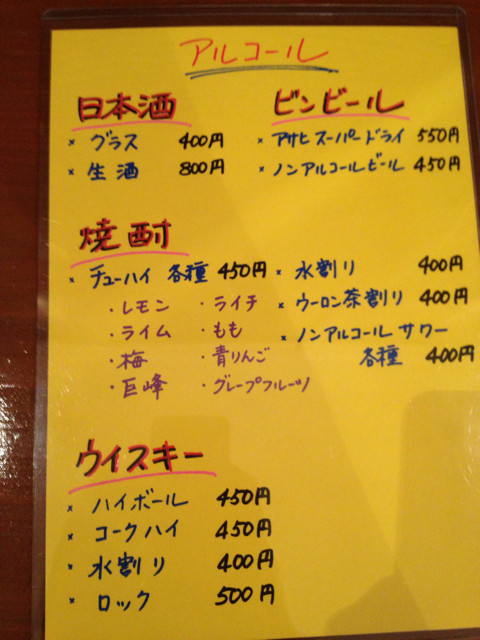 アルコール
日本酒
× グラス 400円
× 生酒 800円
ビンビール
× アサヒスーパードライ 550円
× ノンアルコールビール 450円
焼酎
× チューハイ 各種 450円
・レモン ・ライチ
・ライム ・もも
・梅 ・青りんご
・巨峰 ・グレープフルーツ
× 水割り 400円
× ウーロン茶割り 400円
× ノンアルコール サワー
各種 400円
ウイスキー
× ハイボール 450円
× コークハイ 450円
× 水割り 400円
× ロック 500円